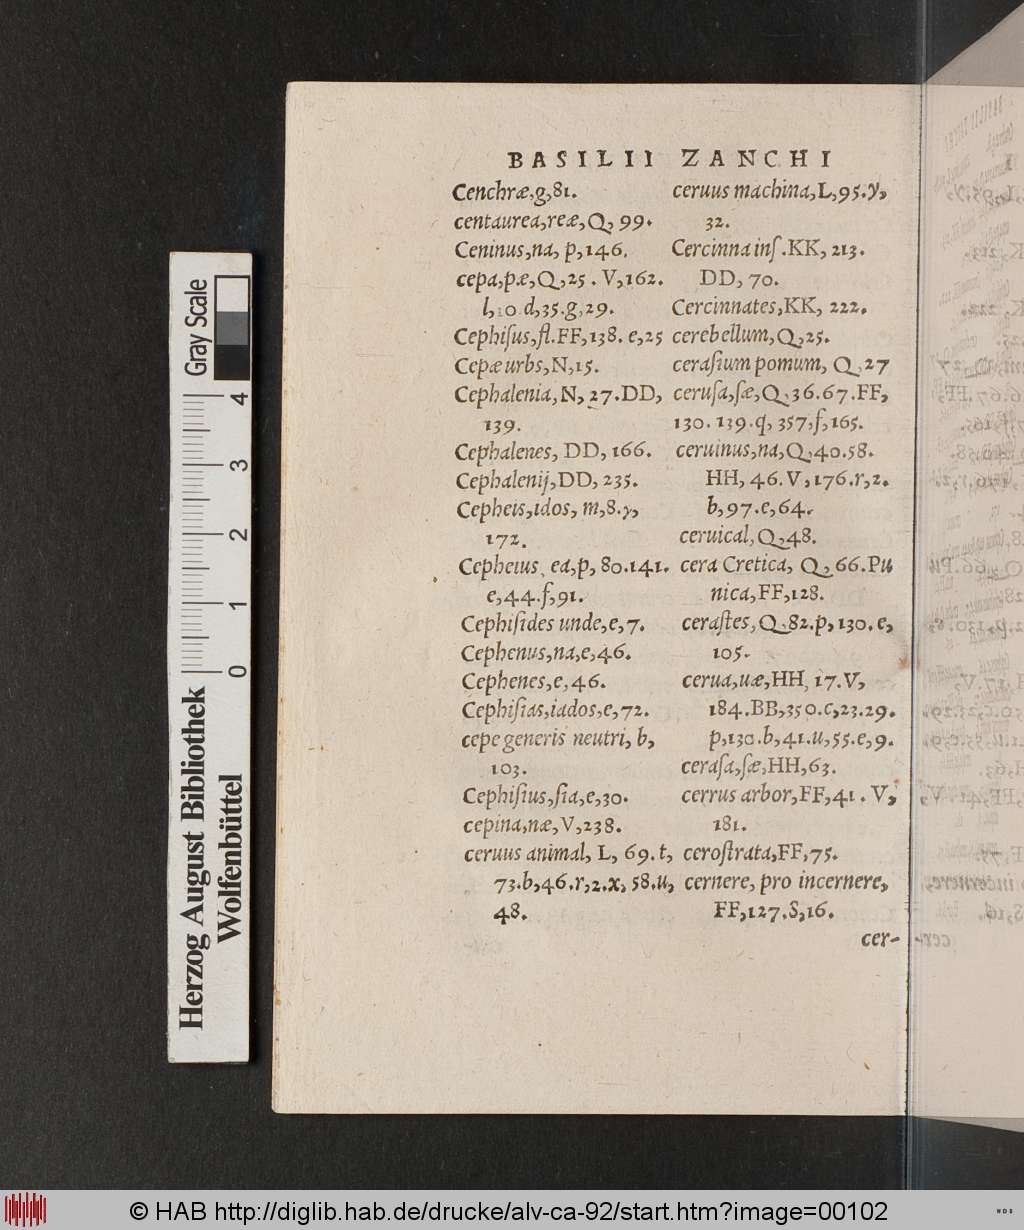 BASILII ZANCHI
Cenchræ,g,81.
centaurea,reæ,Q, 99.
Ceninus,na, p,146.
cepa,pæ,Q,25. V,162.
l,10 d,35.g,29.
Cephiſus,fl.FF,138. e,25
Cepæ urbs,N,15.
Cephalenia, N, 27.DD,
139.
Cephalenes, DD, 166.
Cephalenij,DD, 235.
Cepheis,idos, m,8.y,
172.
Cepheius, ea,p, 80.141.
e,44.f,91.
Cephiſides unde,e,7.
Cephenus,na,e,46.
Cephenes,e,46.
Cephiſias,iados,e,72.
cepe generis neutri, b,
103.
Cephiſius,ſia,e,30.
cepina,næ,V,238.
ceruus animal, L, 69.t,
73.b,46.r,2.x, 58.u,
48.
ceruus machina,L,95.y,
32.
Cercinna inſ.KK, 213.
DD, 70.
Cercinnates,KK, 222.
cerebellum,Q,25.
ceraſium pomum, Q,27
ceruſa,ſæ,Q,36.67.FF,
130.139.q, 357,ſ,165.
ceruinus,na,Q,40.58.
HH, 46.V,176.r,2.
b,97.e,64.
ceruical,Q,48.
cera Cretica, Q,66.Pu
nica,FF,128.
ceraſtes,Q,82.p,130.e,
105.
cerua,uæ,HH, 17.V,
184.BB,350.c,23.29.
p,130.b,41.u,55.e,9.
ceraſa,ſæ,HH,63.
cerrus arbor,FF,41. V,
181.
ceroſtrata,FF,75.
cernere, pro incernere,
FF,127.S,16.
cer-
Gray Scale
0 1 2 3 4
Herzog August Bibliothek
Wolfenbüttel
© HAB http://diglib.hab.de/drucke/alv-ca-92/start.htm?image=00102